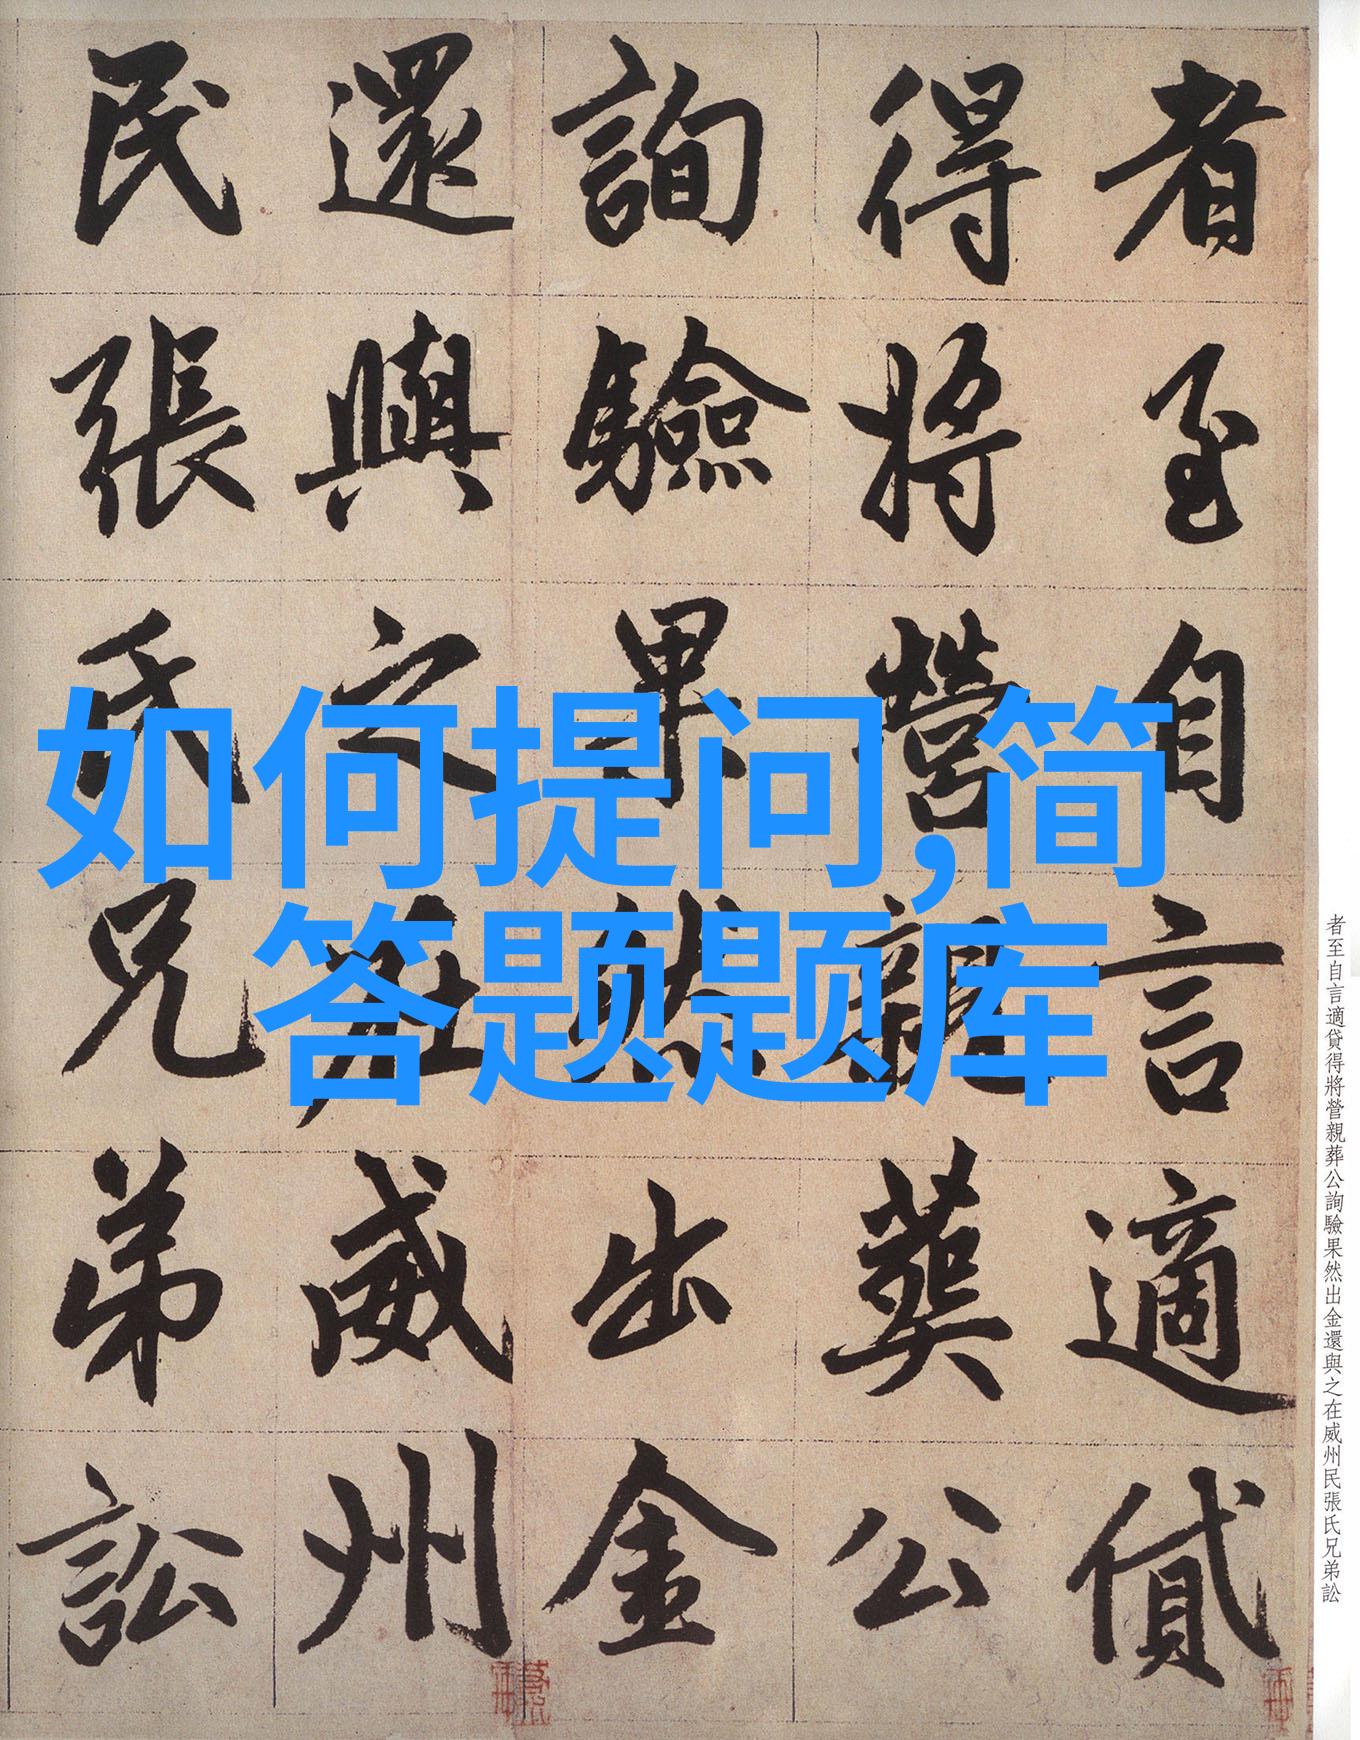 如何提问,简
答题题库
者至自言適貸
得將營親葬公
詢驗果然出金
還與之在威州
民張氏兄弟訟
者至自言適貸得將營親葬公詢驗果然出金還與之在威州民張氏兄弟訟